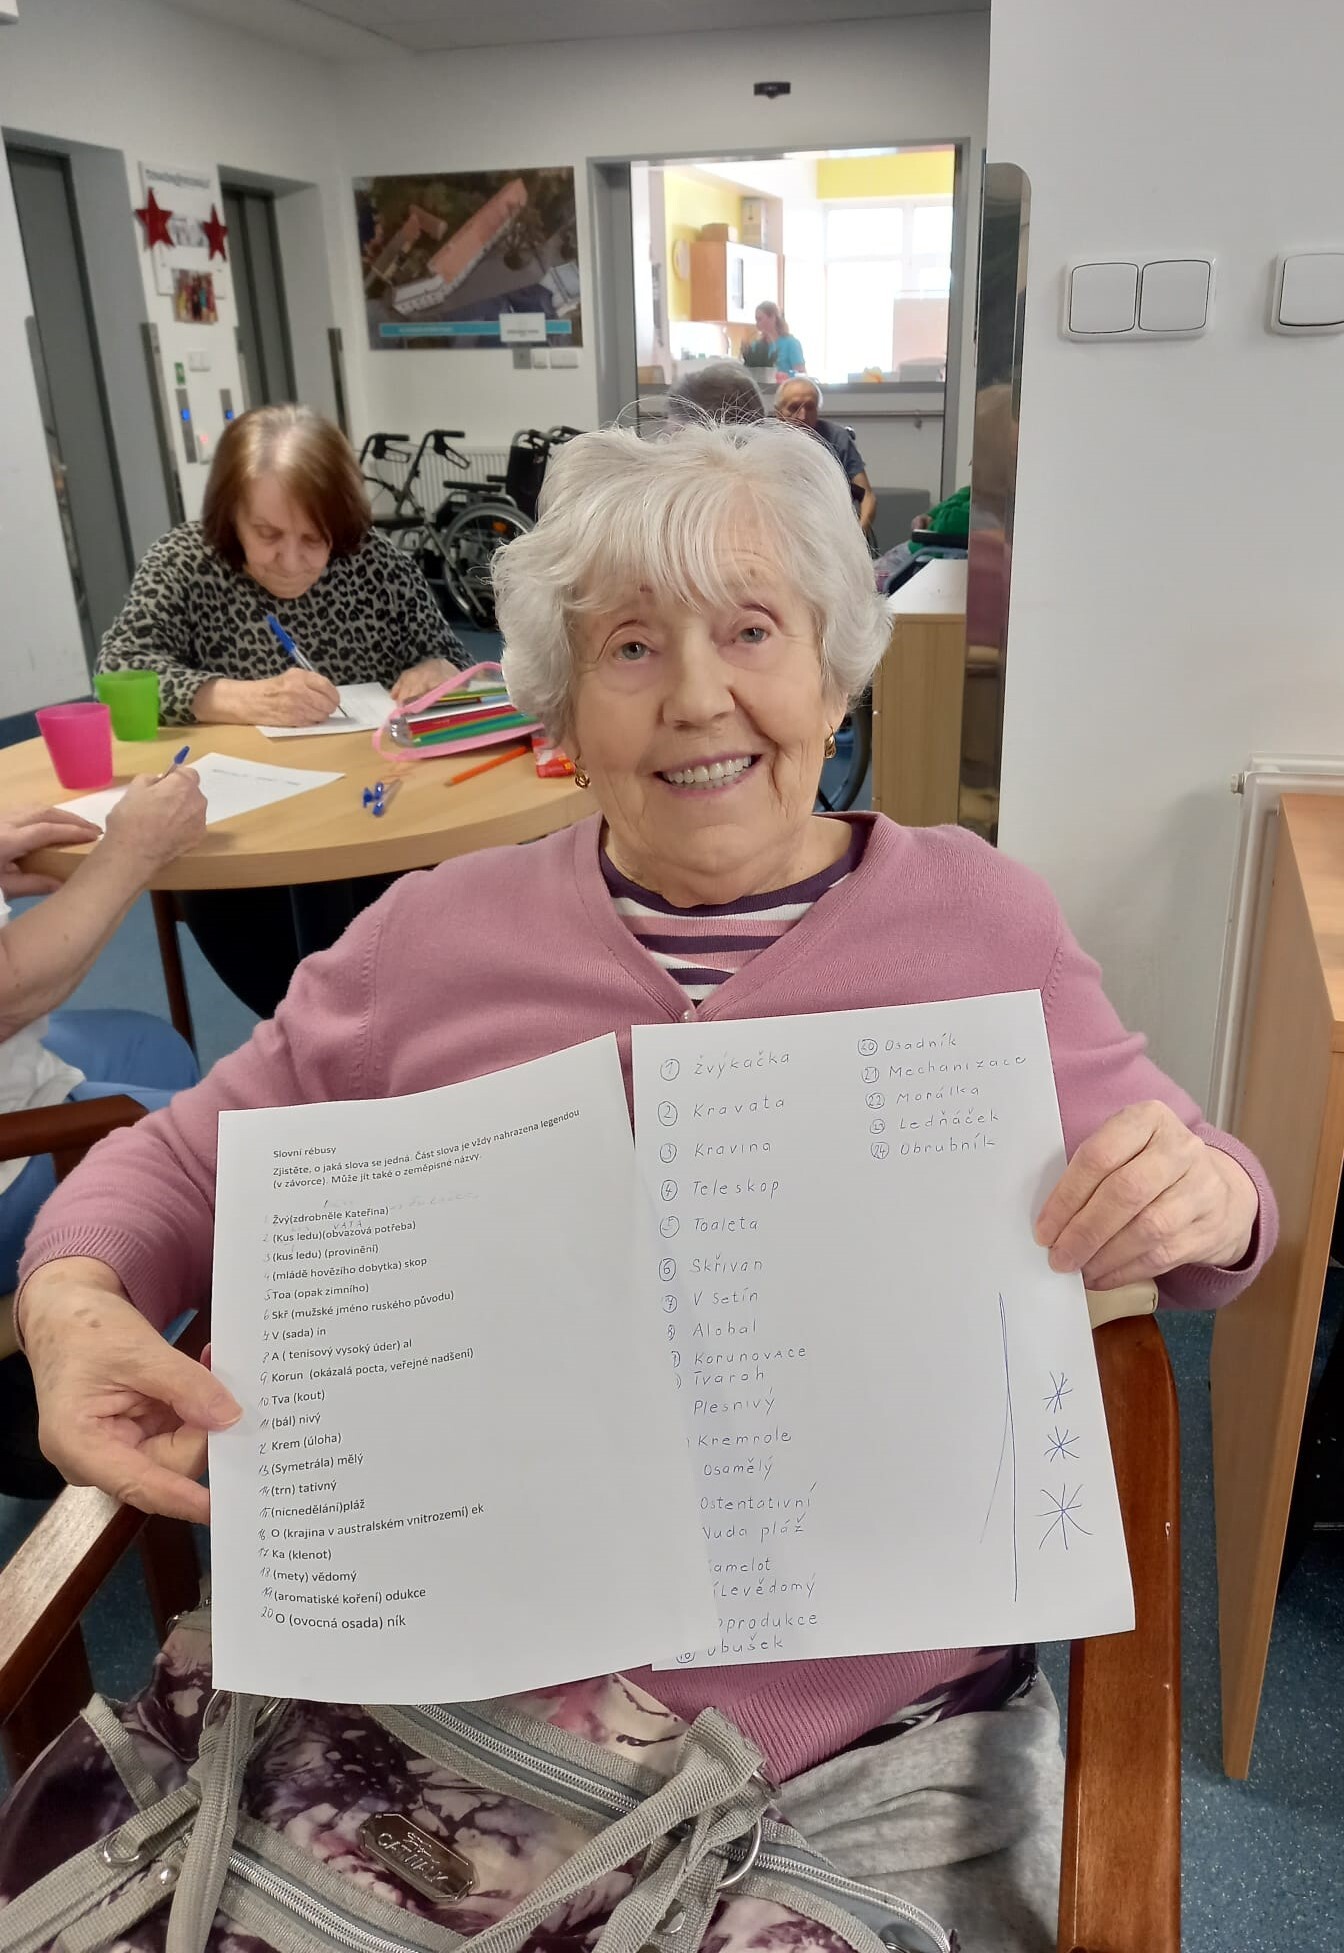 Slovní rébusy
Zjistěte, o jaká slova se jedná. Část slova je vždy nahrazena legendou
(v závorce). Může jít také o zeměpisné názvy.
1 Žvý(zdrobněle Kateřina)
VATA
2 (Kus ledu)(obvazová potřeba)
3 (kus ledu) (provinění)
4 (mládě hovězího dobytka) skop
5 Toa (opak zimního)
6 Skř (mužské jméno ruského původu)
7 V (sada) ín
8 A ( tenisový vysoký úder) al
9 Korun (okázalá pocta, veřejné nadšení)
10 Tva (kout)
11 (bál) nivý
12 Krem (úloha)
13 (Symetrála) mělý
14 (trn) tativný
15 (nicnedělání)pláž
16 O (krajina v australském vnitrozemí) ek
17 Ka (klenot)
18 (mety) vědomý
19 (aromatiské koření) odukce
20 O (ovocná osada) ník
1 Žvýkačka
2 Kravata
3 Kravina
4 Teleskop
5 Toaleta
6 Skřivan
7 Vsetín
8 Alobal
9 Korunovace
Tvaroh
Plesnivý
Kremrole
Osamělý
Ostentativní
Nuda pláž
amelot
ílevědomý
produkce
Obušek
20 Osadník
21 Mechanizace
22 Morálka
23 Ledňáček
24 Obrubník
CATMALY